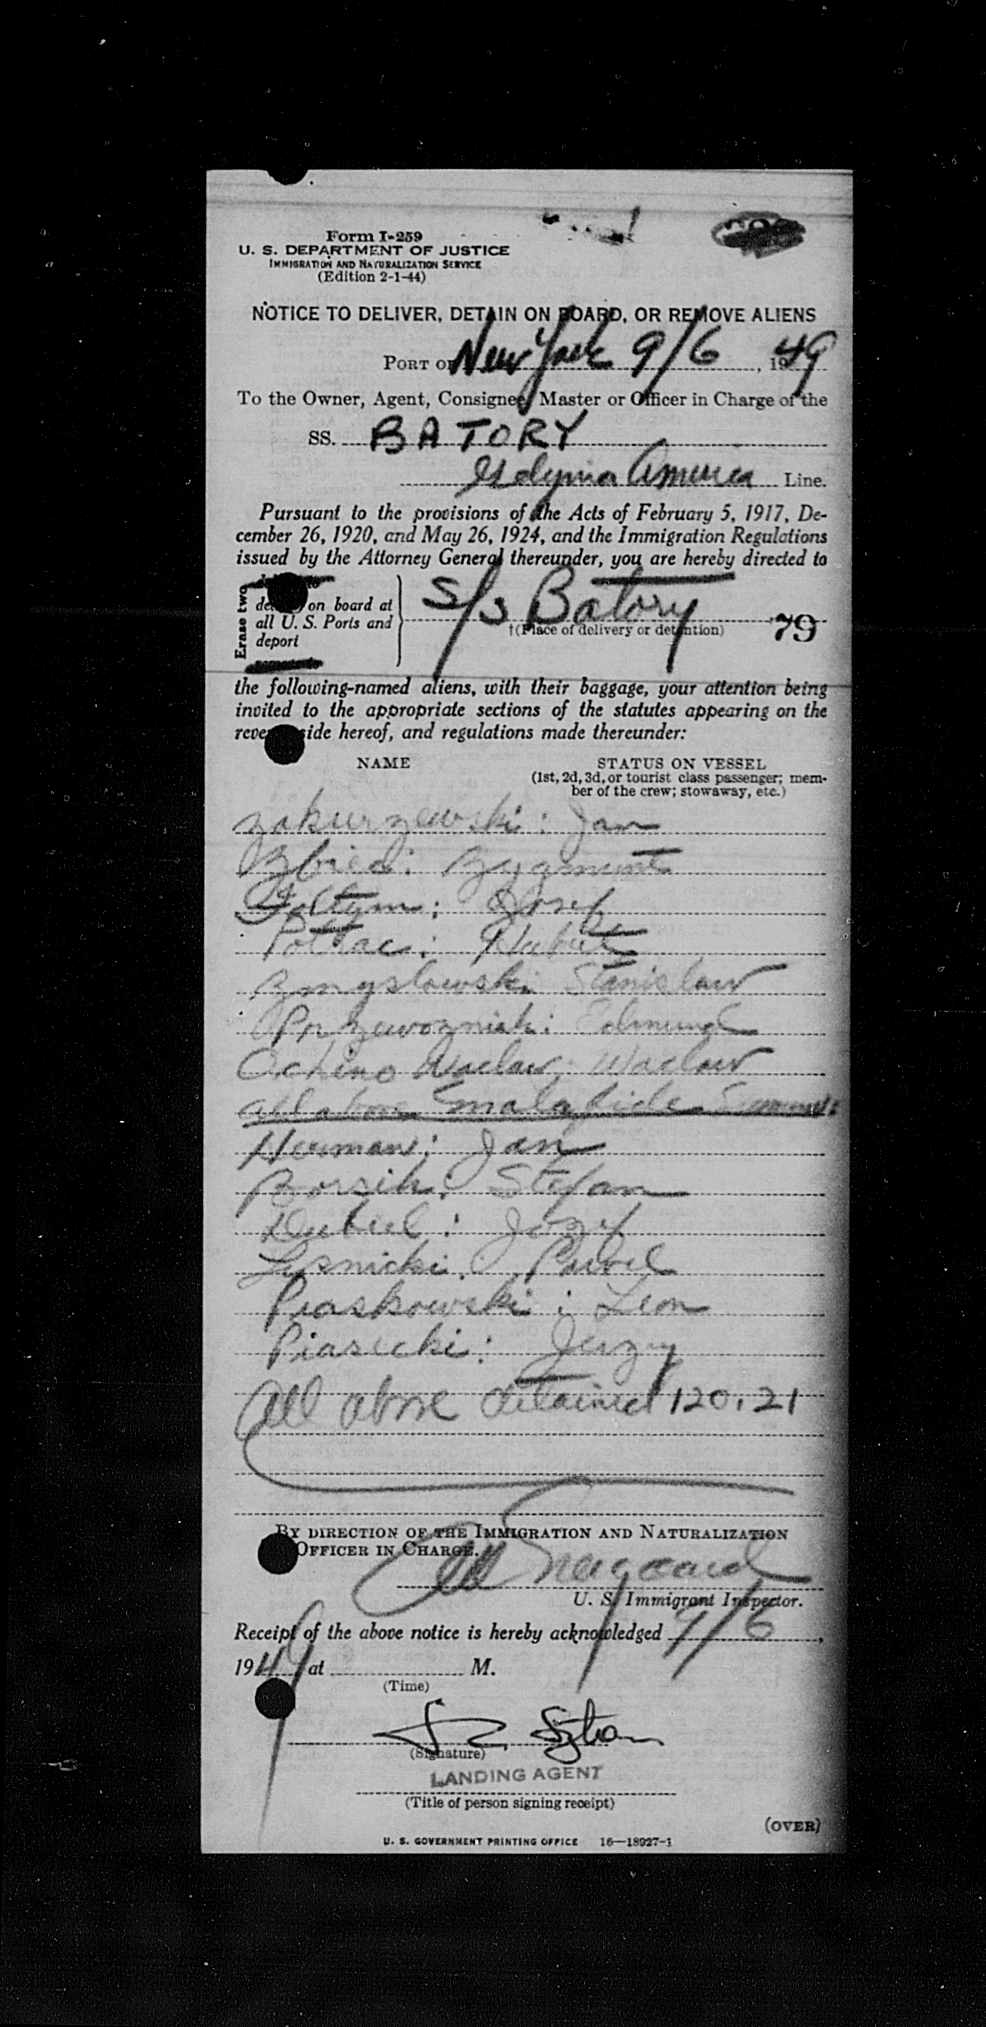 Form I-259
U. S. DEPARTMENT OF JUSTICE
IMMIGRATION AND NATURALIZATION SERVICE
(Edition 2-1-44)
NOTICE TO DELIVER, DETAIN ON BOARD, OR REMOVE ALIENS
PORT OF New York 9/6, 1949
To the Owner, Agent, Consignee, Master or Officer in Charge of the
SS. BATORY
Gdynia America Line.
Pursuant to the provisions of the Acts of February 5, 1917, De-
cember 26, 1920, and May 26, 1924, and the Immigration Regulations
issued by the Attorney General thereunder, you are hereby directed to
Erase two
on board at
all U. S. Ports and
deport
S/S Batory
†(Place of delivery or detention)
79
the following-named aliens, with their baggage, your attention being
invited to the appropriate sections of the statutes appearing on the
reverse side hereof, and regulations made thereunder:
NAME STATUS ON VESSEL
(1st, 2d, 3d, or tourist class passenger; mem-
ber of the crew; stowaway, etc.)
Zakurzewski: Jan
Zbica: Zygmunt
Foltym: Josef
Hubert
Zmyslowski Stanislaw
Przewozniak: Edmund
Waclaw: Waclaw
All above malafide
Herman: Jan
Borsik: Stefan
Dubiel: Jozef
Lesnicki, Pawel
Piaskowski: Leon
Piasecki: Jerzy
All above detained 120.21
BY DIRECTION OF THE IMMIGRATION AND NATURALIZATION
OFFICER IN CHARGE.
U. S. Immigrant Inspector.
Receipt of the above notice is hereby acknowledged 9/6,
1949 at M.
(Time)
(Signature)
LANDING AGENT
(Title of person signing receipt)
(OVER)
U. S. GOVERNMENT PRINTING OFFICE 16—18927-1